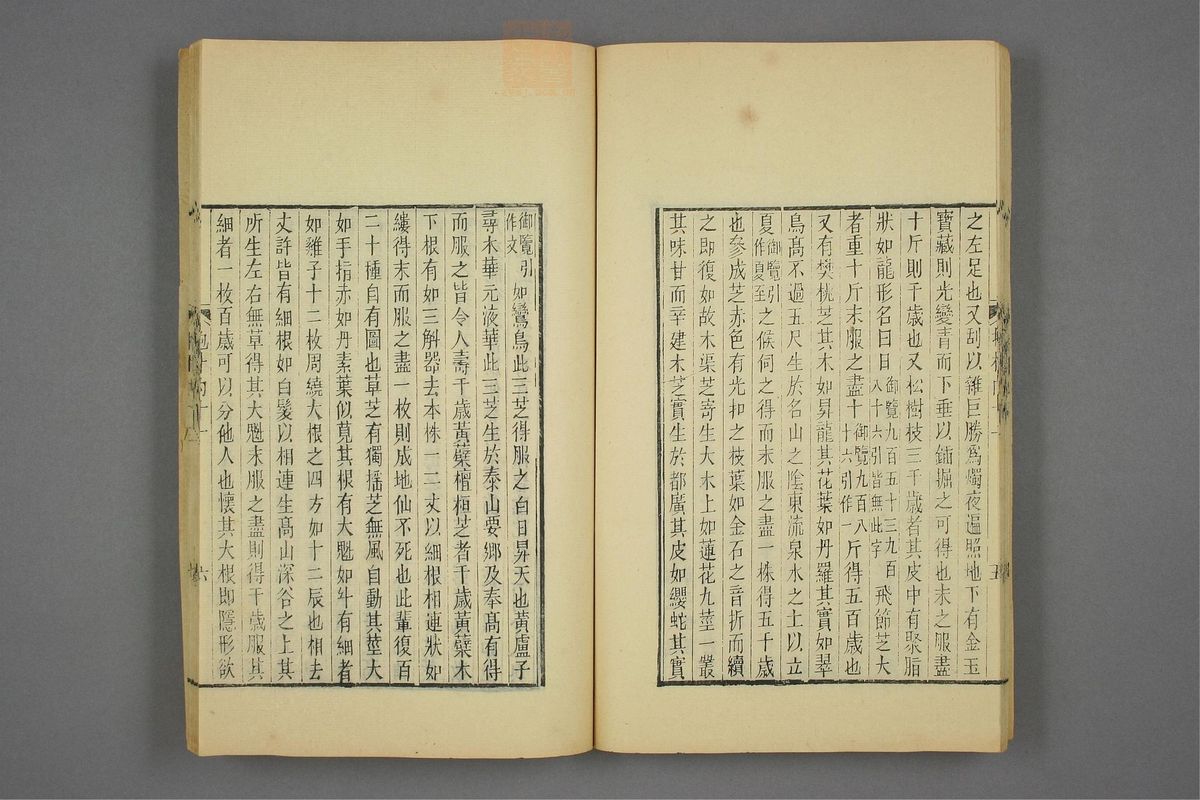 之左足也又刮以雜巨勝爲燭夜遍照地下有金玉
寶藏則光變青而下垂以鍤掘之可得也末之服盡
十斤則千歲也又松樹枝三千歲者其皮中有聚脂
狀如龍形名曰日御覽九百五十三九百八十六引皆無此字飛節芝大
者重十斤末服之盡十御覽九百八十六引作一斤得五百歲也
又有樊桃芝其木如昇龍其花葉如丹羅其實如翠
鳥高不過五尺生於名山之陰東流泉水之土以立
夏御覽引作夏至之候伺之得而末服之盡一株得五千歲
也參成芝赤色有光扣之枝葉如金石之音折而續
之即復如故木渠芝寄生大木上如蓮花九莖一叢
其味甘而辛建木芝實生於都廣其皮如纓蛇其實
御覽引作文如鸞鳥此三芝得服之白日昇天也黃盧子
尋木華元液華此三芝生於泰山要鄉及奉高有得
而服之皆令人壽千歲黃蘗檀桓芝者千歲黃蘗木
下根有如三斛器去本株一二丈以細根相連狀如
縷得末而服之盡一枚則成地仙不死也此輩復百
二十種自有圖也草芝有獨搖芝無風自動其莖大
如手指赤如丹素葉似莧其根有大魁如斗有細者
如雞子十二枚周繞大根之四方如十二辰也相去
丈許皆有細根如白髮以相連生高山深谷之上其
所生左右無草得其大魁末服之盡則得千歲服其
細者一枚百歲可以分他人也懷其大根即隱形欲